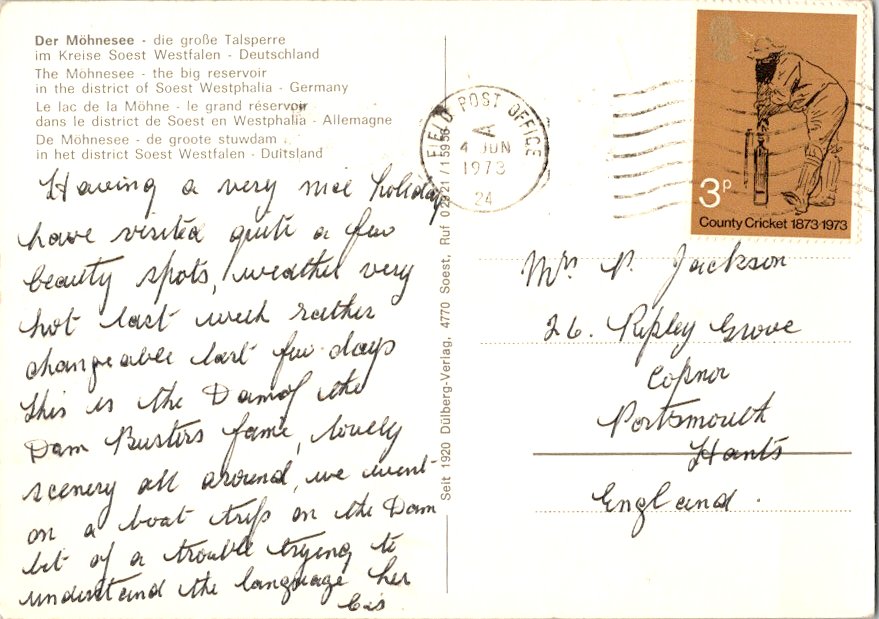 Der Möhnesee - die große Talsperre
im Kreise Soest Westfalen - Deutschland
The Möhnesee - the big reservoir
in the district of Soest Westphalia - Germany
Le lac de la Möhne - le grand réservoir
dans le district de Soest en Westphalia - Allemagne
De Möhnesee - de groote stuwdam
in het district Soest Westfalen - Duitsland
Having a very nice holiday
have visited quite a few
beauty spots, weather very
hot last week rather
changeable last few days
This is the Dam of the
Dam Busters fame, lovely
scenery all around, we went
on a boat trip on the Dam
bit of a trouble trying to
understand the language her
Seit 1920 Dülberg-Verlag, 4770 Soest, Ruf
FIELD POST OFFICE
A
4 JUN
1973
24
3P
County Cricket 1873-1973
Mrs P. Jackson
26. Ripley Grove
Copnor
Portsmouth
Hants
England.